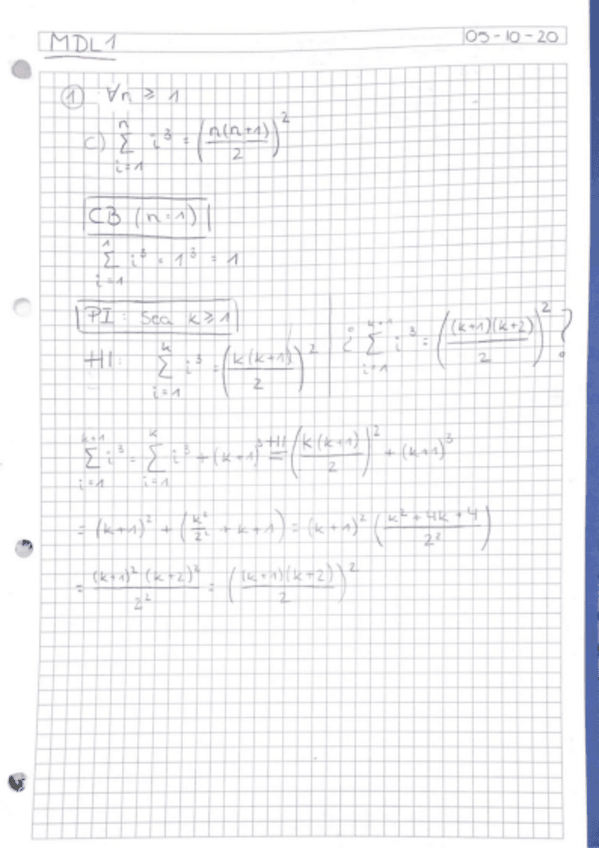 MDL1 05-10-20
① ∀n ≥ 1
c) ∑_{i=1}^{n} i³ = (n(n+1)/2)²
CB (n=1)
∑_{i=1}^{1} i³ = 1³ = 1
PI: Sea k ≥ 1
HI: ∑_{i=1}^{k} i³ = (k(k+1)/2)² | ¿ ∑_{i=1}^{k+1} i³ = ((k+1)(k+2)/2)² ?
∑_{i=1}^{k+1} i³ = ∑_{i=1}^{k} i³ + (k+1)³ =^{HI} (k(k+1)/2)² + (k+1)³
= (k+1)² + (k²/2² + k+1) = (k+1)² ((k² + 4k + 4)/2²)
= (k+1)² (k+2)²/2² = ((k+1)(k+2)/2)²